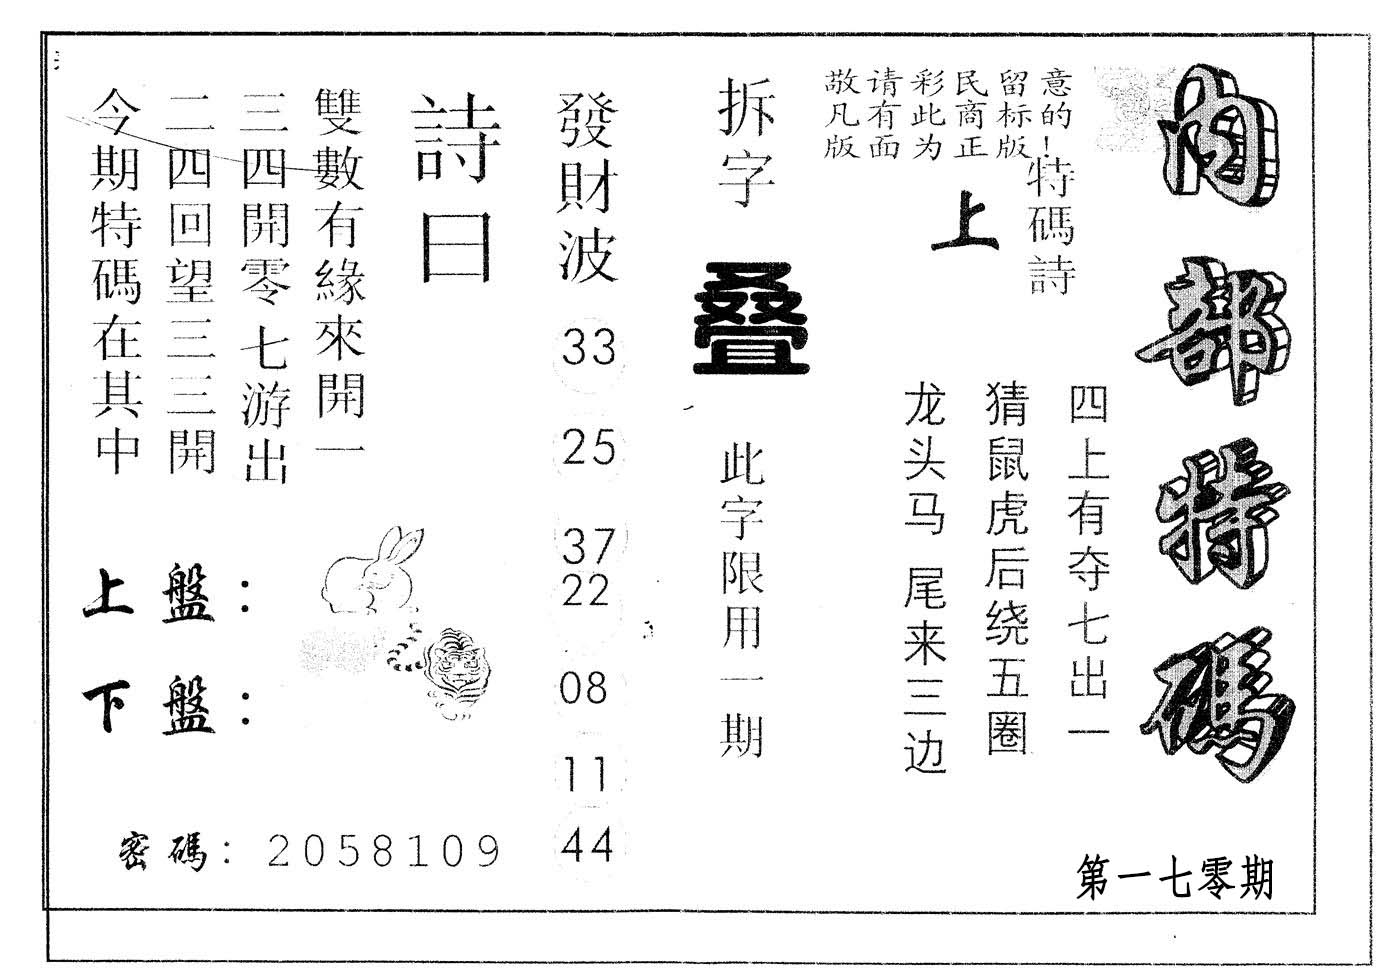 内部特碼
第一七零期
敬请彩民留意
凡有此商标的
版面为正版！
特碼詩
上
四上有夺七出一
猜鼠虎后绕五圈
龙头马尾来三边
拆字
叠
此字限用一期
發財波
33
25
37
22
08
11
44
詩曰
雙數有緣來開一
三四開零七游出
二四回望三三開
今期特碼在其中
上盤：
下盤：
密碼：2058109